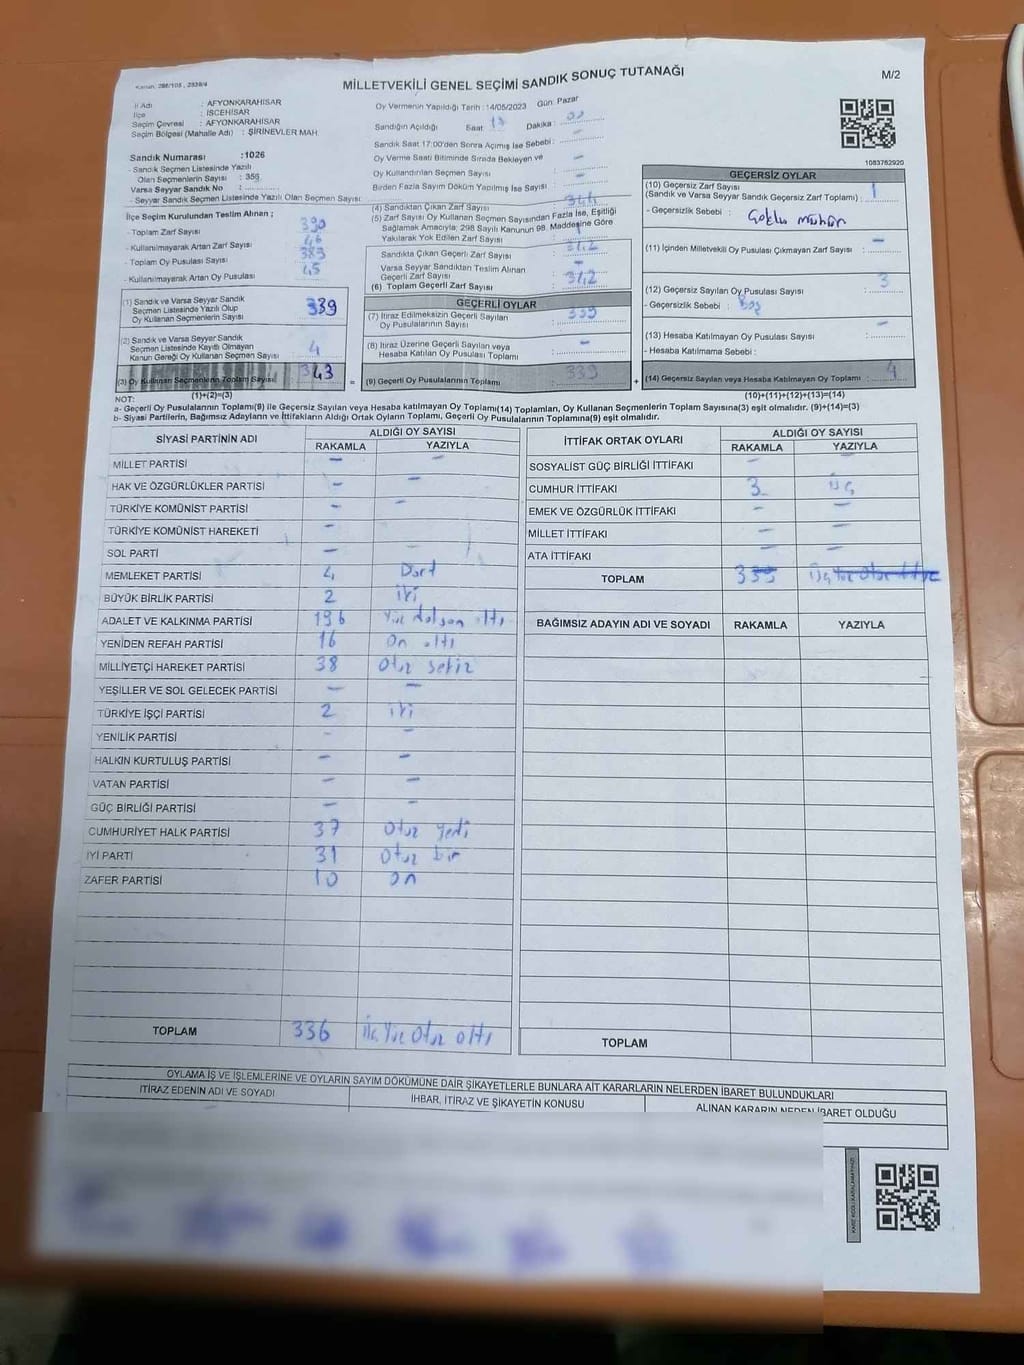 Kanun: 298/105 , 2839/4
MİLLETVEKİLİ GENEL SEÇİMİ SANDIK SONUÇ TUTANAĞI
M/2
İl Adı : AFYONKARAHİSAR
İlçe : İSCEHİSAR
Seçim Çevresi : AFYONKARAHİSAR
Seçim Bölgesi (Mahalle Adı) : ŞİRİNEVLER MAH.
Oy Vermenin Yapıldığı Tarih : 14/05/2023 Gün: Pazar
Sandığın Açıldığı Saat : 17 Dakika : 00
Sandık Saat 17:00'den Sonra Açımış İse Sebebi : –
Oy Verme Saati Bitiminde Sırada Bekleyen ve
Oy Kullandırılan Seçmen Sayısı : –
Birden Fazla Sayım Döküm Yapılmış İse Sayısı : –
1083762920
Sandık Numarası : 1026
- Sandık Seçmen Listesinde Yazılı
Olan Seçmenlerin Sayısı : 356
Varsa Seyyar Sandık No :
- Seyyar Sandık Seçmen Listesinde Yazılı Olan Seçmen Sayısı :
İlçe Seçim Kurulundan Teslim Alınan ;
- Toplam Zarf Sayısı : 390
- Kullanılmayarak Artan Zarf Sayısı : 46
- Toplam Oy Pusulası Sayısı : 383
- Kullanılmayarak Artan Oy Pusulası : 45
(1) Sandık ve Varsa Seyyar Sandık
Seçmen Listesinde Yazılı Olup
Oy Kullanan Seçmenlerin Sayısı : 339
(2) Sandık ve Varsa Seyyar Sandık
Seçmen Listesinde Kayıtlı Olmayan
Kanun Gereği Oy Kullanan Seçmen Sayısı : 4
(3) Oy Kullanan Seçmenlerin Toplam Sayısı : 343
(1)+(2)=(3)
(4) Sandıktan Çıkan Zarf Sayısı : 344
(5) Zarf Sayısı Oy Kullanan Seçmen Sayısından Fazla İse, Eşitliği
Sağlamak Amacıyla; 298 Sayılı Kanunun 98. Maddesine Göre
Yakılarak Yok Edilen Zarf Sayısı : 1
Sandıkta Çıkan Geçerli Zarf Sayısı : 342
Varsa Seyyar Sandıktan Teslim Alınan
Geçerli Zarf Sayısı : –
(6) Toplam Geçerli Zarf Sayısı : 342
GEÇERLİ OYLAR
(7) İtiraz Edilmeksizin Geçerli Sayılan
Oy Pusulalarının Sayısı : 339
(8) İtiraz Üzerine Geçerli Sayılan veya
Hesaba Katılan Oy Pusulası Toplamı : –
= (9) Geçerli Oy Pusulalarının Toplamı : 339
GEÇERSİZ OYLAR
(10) Geçersiz Zarf Sayısı
(Sandık ve Varsa Seyyar Sandık Geçersiz Zarf Toplamı) : 1
- Geçersizlik Sebebi : Çoklu mühür
(11) İçinden Milletvekili Oy Pusulası Çıkmayan Zarf Sayısı : –
(12) Geçersiz Sayılan Oy Pusulası Sayısı : 3
- Geçersizlik Sebebi : Boş
(13) Hesaba Katılmayan Oy Pusulası Sayısı : –
- Hesaba Katılmama Sebebi :
+ (14) Geçersiz Sayılan veya Hesaba Katılmayan Oy Toplamı : 4
(10)+(11)+(12)+(13)=(14)
NOT:
a- Geçerli Oy Pusulalarının Toplamı(9) ile Geçersiz Sayılan veya Hesaba katılmayan Oy Toplamı(14) Toplamları, Oy Kullanan Seçmenlerin Toplam Sayısına(3) eşit olmalıdır. (9)+(14)=(3)
b- Siyasi Partilerin, Bağımsız Adayların ve İttifakların Aldığı Ortak Oyların Toplamı, Geçerli Oy Pusulalarının Toplamına(9) eşit olmalıdır.
SİYASİ PARTİNİN ADI ALDIĞI OY SAYISI
RAKAMLA YAZIYLA
MİLLET PARTİSİ – –
HAK VE ÖZGÜRLÜKLER PARTİSİ – –
TÜRKİYE KOMÜNİST PARTİSİ – –
TÜRKİYE KOMÜNİST HAREKETİ –
SOL PARTİ –
MEMLEKET PARTİSİ 4 Dört
BÜYÜK BİRLİK PARTİSİ 2 iki
ADALET VE KALKINMA PARTİSİ 196 Yüz doksan altı
YENİDEN REFAH PARTİSİ 16 On altı
MİLLİYETÇİ HAREKET PARTİSİ 38 Otuz sekiz
YEŞİLLER VE SOL GELECEK PARTİSİ – –
TÜRKİYE İŞÇİ PARTİSİ 2 iki
YENİLİK PARTİSİ – –
HALKIN KURTULUŞ PARTİSİ – –
VATAN PARTİSİ – –
GÜÇ BİRLİĞİ PARTİSİ – –
CUMHURİYET HALK PARTİSİ 37 Otuz yedi
İYİ PARTİ 31 Otuz bir
ZAFER PARTİSİ 10 On
TOPLAM 336 Üç Yüz Otuz altı
İTTİFAK ORTAK OYLARI ALDIĞI OY SAYISI
RAKAMLA YAZIYLA
SOSYALİST GÜÇ BİRLİĞİ İTTİFAKI – –
CUMHUR İTTİFAKI 3 üç
EMEK VE ÖZGÜRLÜK İTTİFAKI – –
MİLLET İTTİFAKI – –
ATA İTTİFAKI – –
TOPLAM 3
BAĞIMSIZ ADAYIN ADI VE SOYADI RAKAMLA YAZIYLA
TOPLAM
OYLAMA İŞ VE İŞLEMLERİNE VE OYLARIN SAYIM DÖKÜMÜNE DAİR ŞİKAYETLERLE BUNLARA AİT KARARLARIN NELERDEN İBARET BULUNDUKLARI
İTİRAZ EDENİN ADI VE SOYADI İHBAR, İTİRAZ VE ŞİKAYETİN KONUSU ALINAN KARARIN NEDEN İBARET OLDUĞU